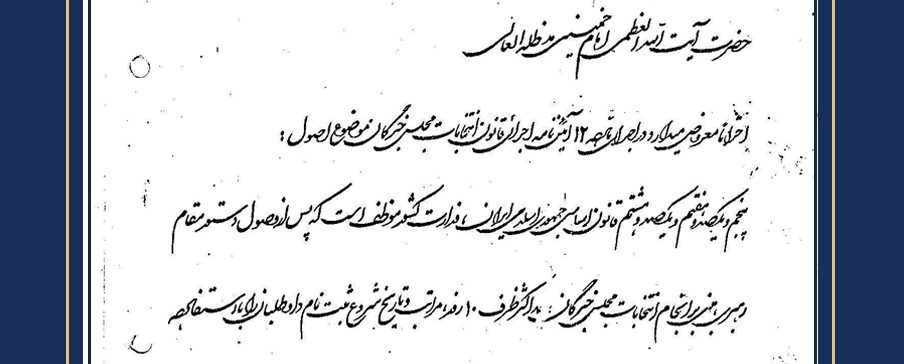 حضرت آیت الله العظمی امام خمینی مدظله العالی
احتراما معروض میدارد در اجرای ماده ۱۲ آئین نامه اجرائی قانون انتخابات مجلس خبرگان موضوع اصول :
پنجم و یکصد و هفتم و یکصد و هشتم قانون اساسی جمهوری اسلامی ایران ، وزارت کشور موظف است که پس از وصول دستور مقام
رهبری مبنی بر انجام انتخابات مجلس خبرگان حداکثر ظرف ۱۰ روز ، مراتب و تاریخ شروع ثبت نام داوطلبان را با استفاده